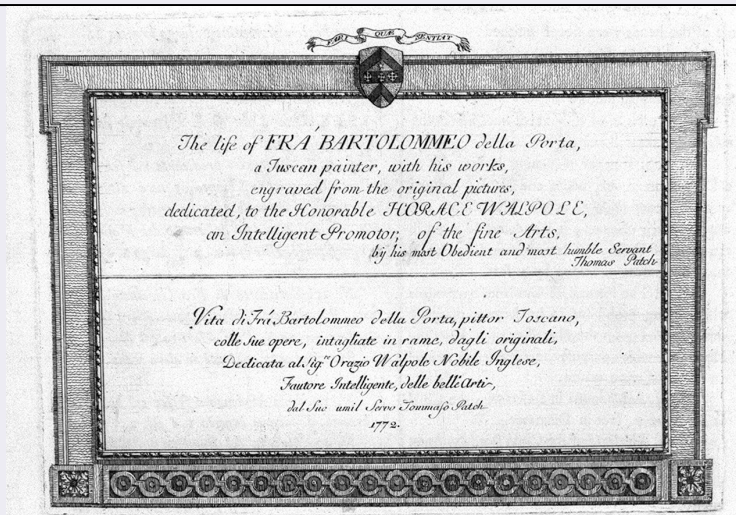 FARI QUÆ SENTIAT
The life of FRÁ BARTOLOMMEO della Porta,
a Tuscan painter, with his works,
engraved from the original pictures,
dedicated, to the Honorable HORACE WALPOLE,
an Intelligent Promotor, of the fine Arts,
by his most Obedient and most humble Servant
Thomas Patch
Vita di Frá Bartolommeo della Porta, pittor Toscano,
colle sue opere, intagliate in rame, dagli originali,
Dedicata al Sig.re Orazio Walpole Nobile Inglese,
Fautore Intelligente, delle belle Arti,
dal Suo umil Servo Tommaso Patch
1772.